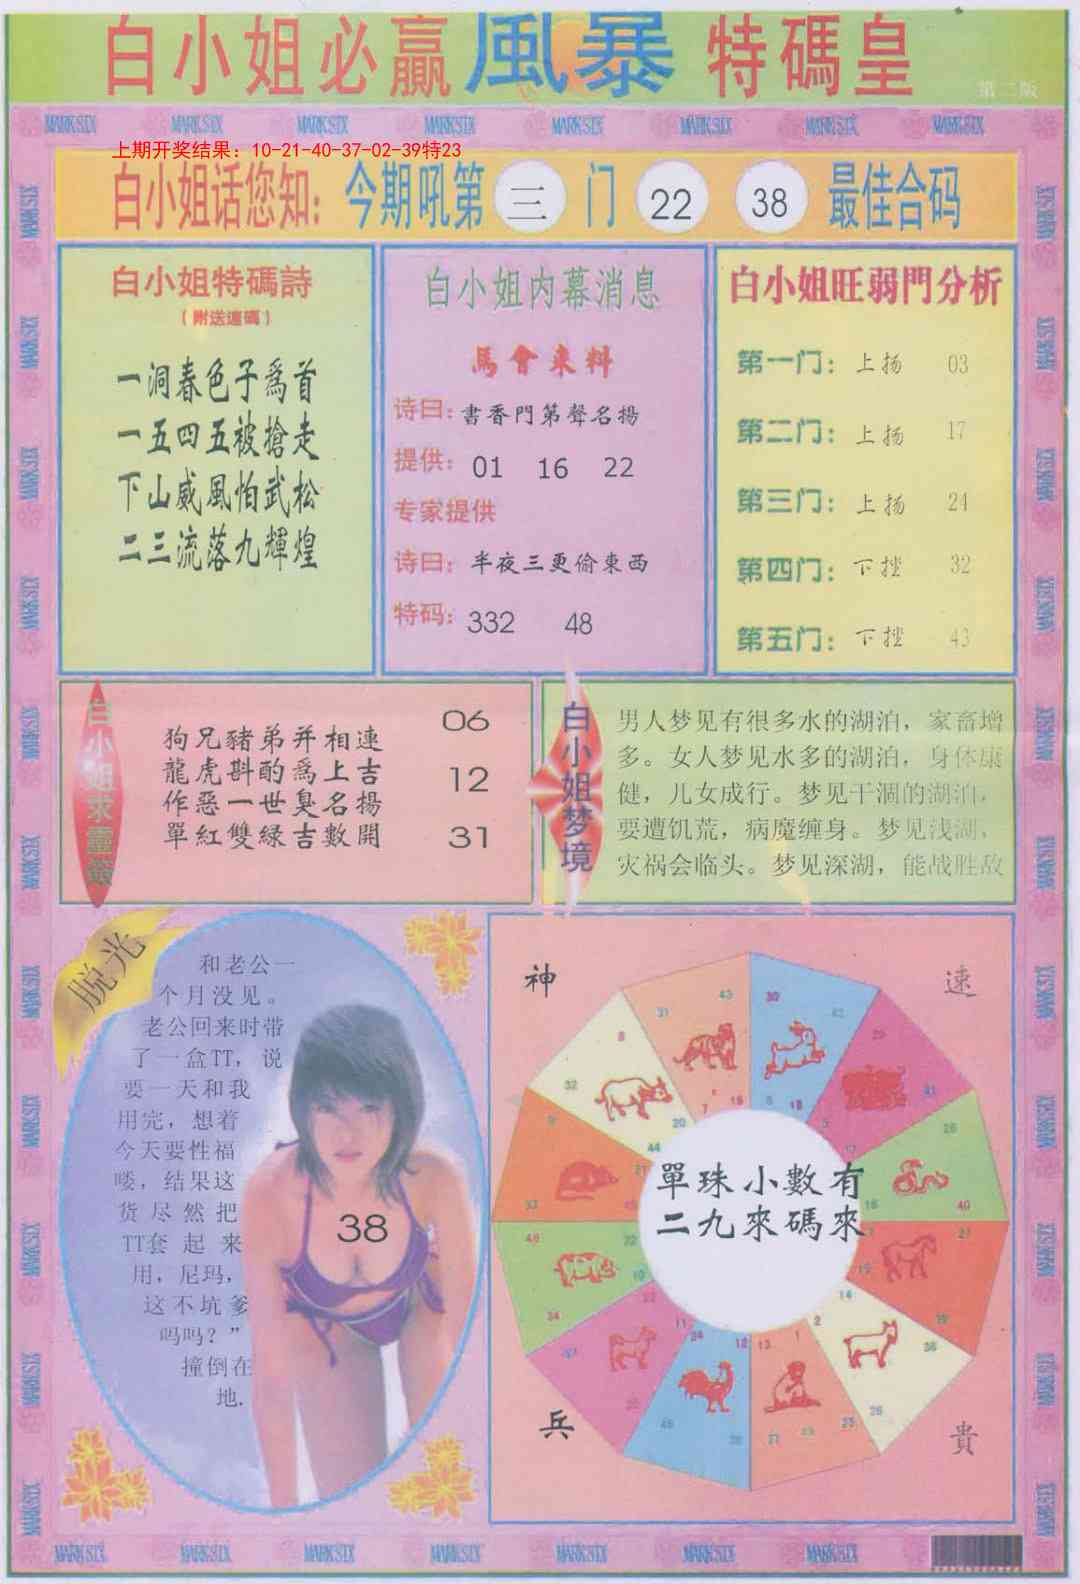 白小姐必贏風暴特碼皇
第二版
MARK SIX MARK SIX MARK SIX MARK SIX MARK SIX MARK SIX MARK SIX MARK SIX
上期开奖结果：10-21-40-37-02-39特23
白小姐话您知：今期吼第三门 22 38 最佳合码
白小姐特碼詩
（附送連碼）
一洞春色子爲首
一五四五被搶走
下山威風怕武松
二三流落九輝煌
白小姐内幕消息
馬會來料
诗曰：書香門第聲名揚
提供：01 16 22
专家提供
诗曰：半夜三更偷東西
特码：332 48
白小姐旺弱門分析
第一门：上扬 03
第二门：上扬 17
第三门：上扬 24
第四门：下挫 32
第五门：下挫 43
白小姐求靈簽
狗兄豬弟并相連
龍虎斟酌爲上吉
作惡一世臭名揚
單紅雙緑吉數開
06
12
31
白小姐梦境
男人梦见有很多水的湖泊，家畜增
多。女人梦见水多的湖泊，身体康
健，儿女成行。梦见干涸的湖泊，
要遭饥荒，病魔缠身。梦见浅湖，
灾祸会临头。梦见深湖，能战胜敌
脱光
和老公一
个月没见。
老公回来时带
了一盒TT，说
要一天和我
用完，想着
今天要性福
喽，结果这
货尽然把
TT套起来
用，尼玛，
这不坑爹
吗吗？”
撞倒在
地.
38
神
速
兵
貴
單珠小數有
二九來碼來
MARK SIX MARK SIX MARK SIX MARK SIX MARK SIX MARK SIX MARK SIX